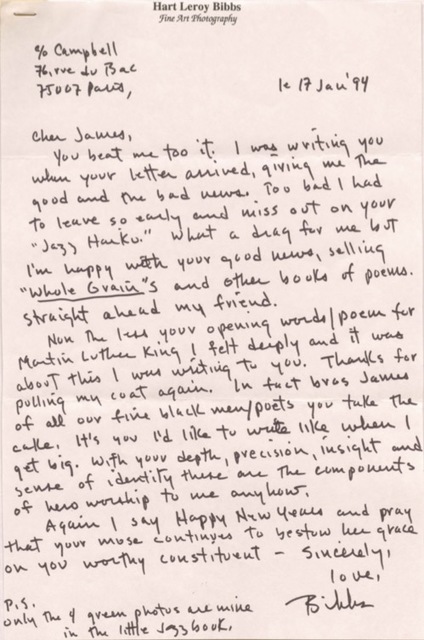 Hart Leroy Bibbs
Fine Art Photography
c/o Campbell
76, rue du Bac
75007 Paris,
le 17 Jan '94
Cher James,
You beat me too it. I was writing you
when your letter arrived, giving me the
good and the bad news. Too bad I had
to leave so early and miss out on your
"Jazz Haiku." What a drag for me but
I'm happy with your good news, selling
"Whole Grain"s and other books of poems.
Straight ahead my friend.
Non the less your opening words/poem for
Martin Luther King I felt deeply and it was
about this I was writing to you. Thanks for
pulling my coat again. In fact bros James
of all our fine black men/poets you take the
cake. It's you I'd like to write like when I
get big. With your depth, precision, insight and
sense of identity these are the components
of hero worship to me anyhow.
Again I say Happy New Years and pray
that your muse continues to bestow her grace
on you worthy constituent – Sincerely,
love,
Bibbs
P.S.
only the 4 green photos are mine
in the little Jazz book.